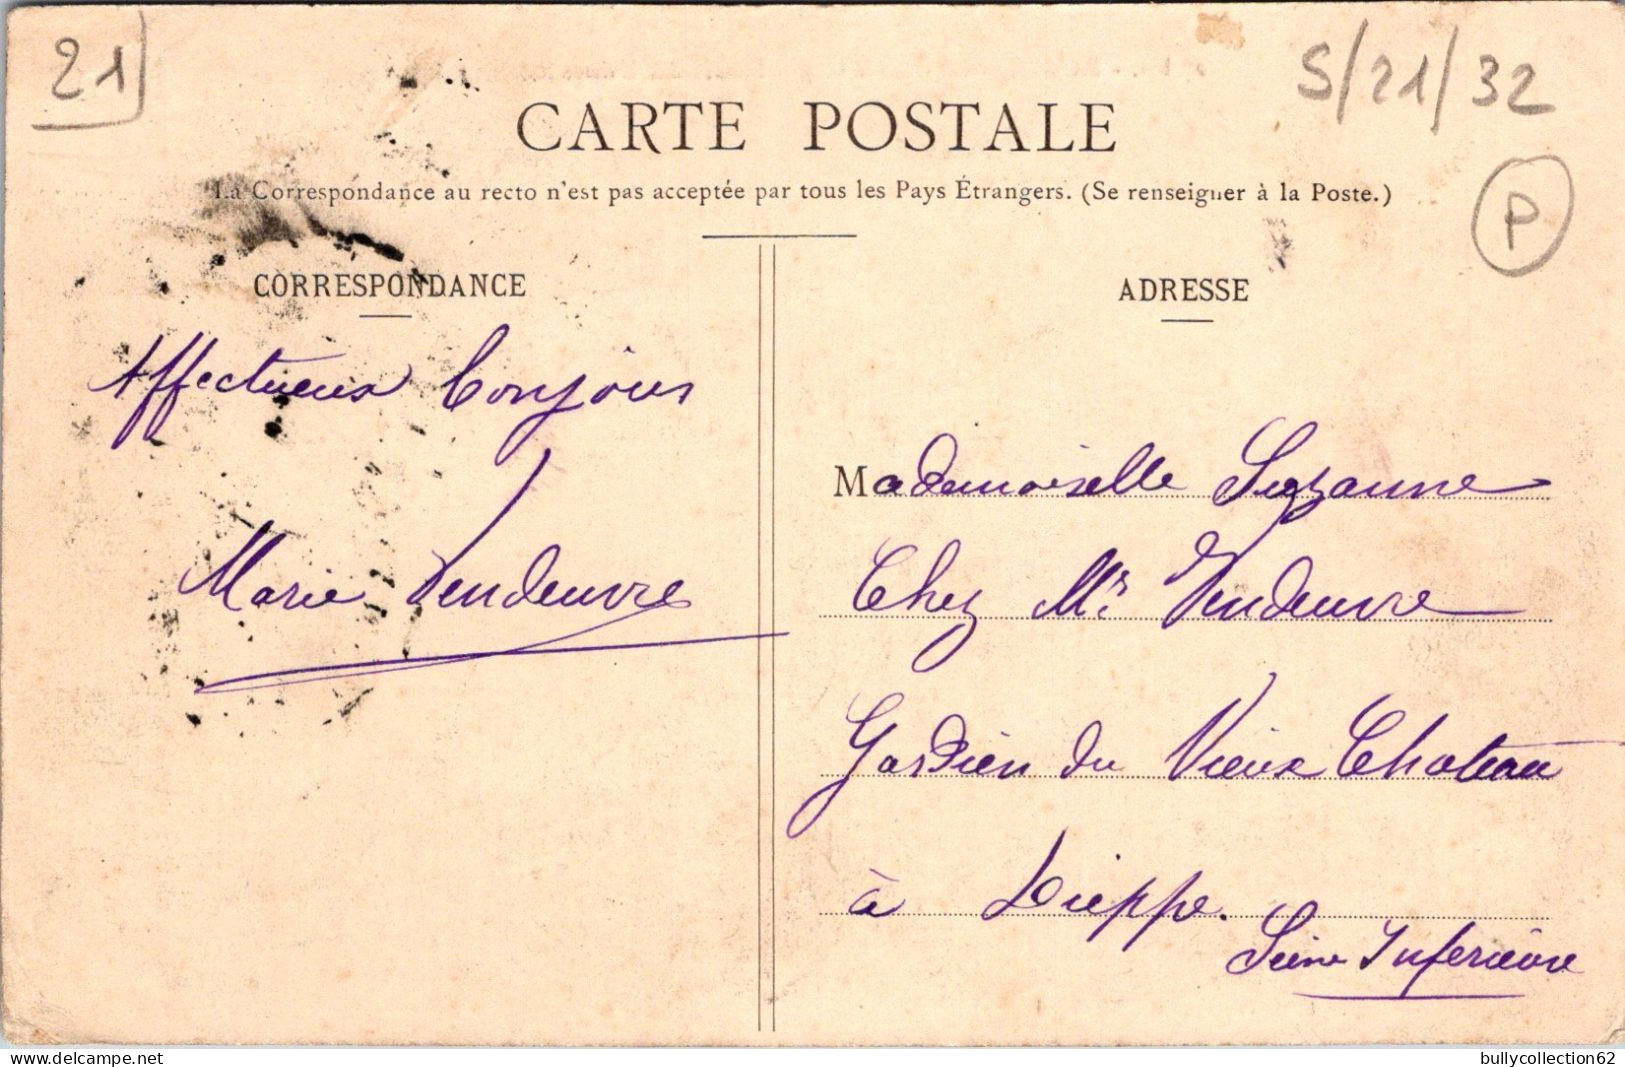 21
S/21/32
CARTE POSTALE
La Correspondance au recto n'est pas acceptée par tous les Pays Étrangers. (Se renseigner à la Poste.)
P
CORRESPONDANCE
Affectueux bonjour
Marie Vendeuvre
ADRESSE
Mademoiselle Suzanne
Chez Mr Vendeuvre
Gardien du Vieux Chateau
à Dieppe.
Seine Inferieure
delcampe.net
bullycollection62